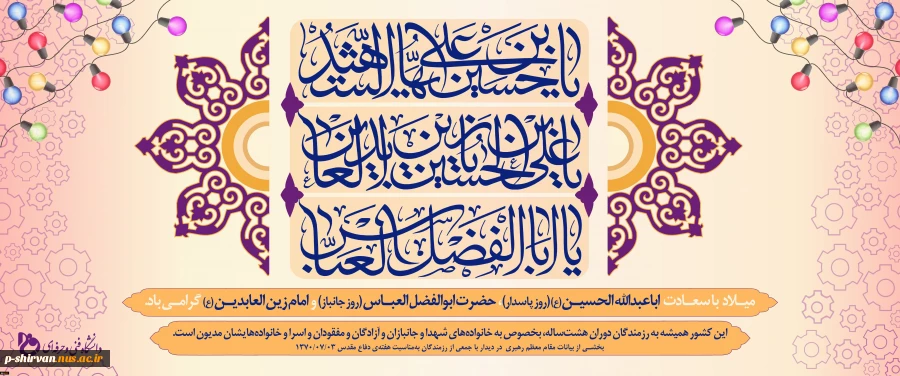 یا حسین بن علی ایها الشهید
یا علی بن الحسین یا زین العابدین
یا اباالفضل العباس
میلاد باسعادت اباعبدالله الحسین(ع)(روز پاسدار) حضرت ابوالفضل العباس(روز جانباز) و امام زین العابدین(ع) گرامی باد.
این کشور همیشه به رزمندگان دوران هشت‌ساله، بخصوص به خانواده‌های شهدا و جانبازان و آزادگان و مفقودان و اسرا و خانواده‌هایشان مدیون است.
بخشی از بیانات مقام معظم رهبری در دیدار با جمعی از رزمندگان به‌مناسبت هفته‌ی دفاع مقدس ۱۳۷۰/۰۷/۰۳
p-shirvan.nus.ac.ir